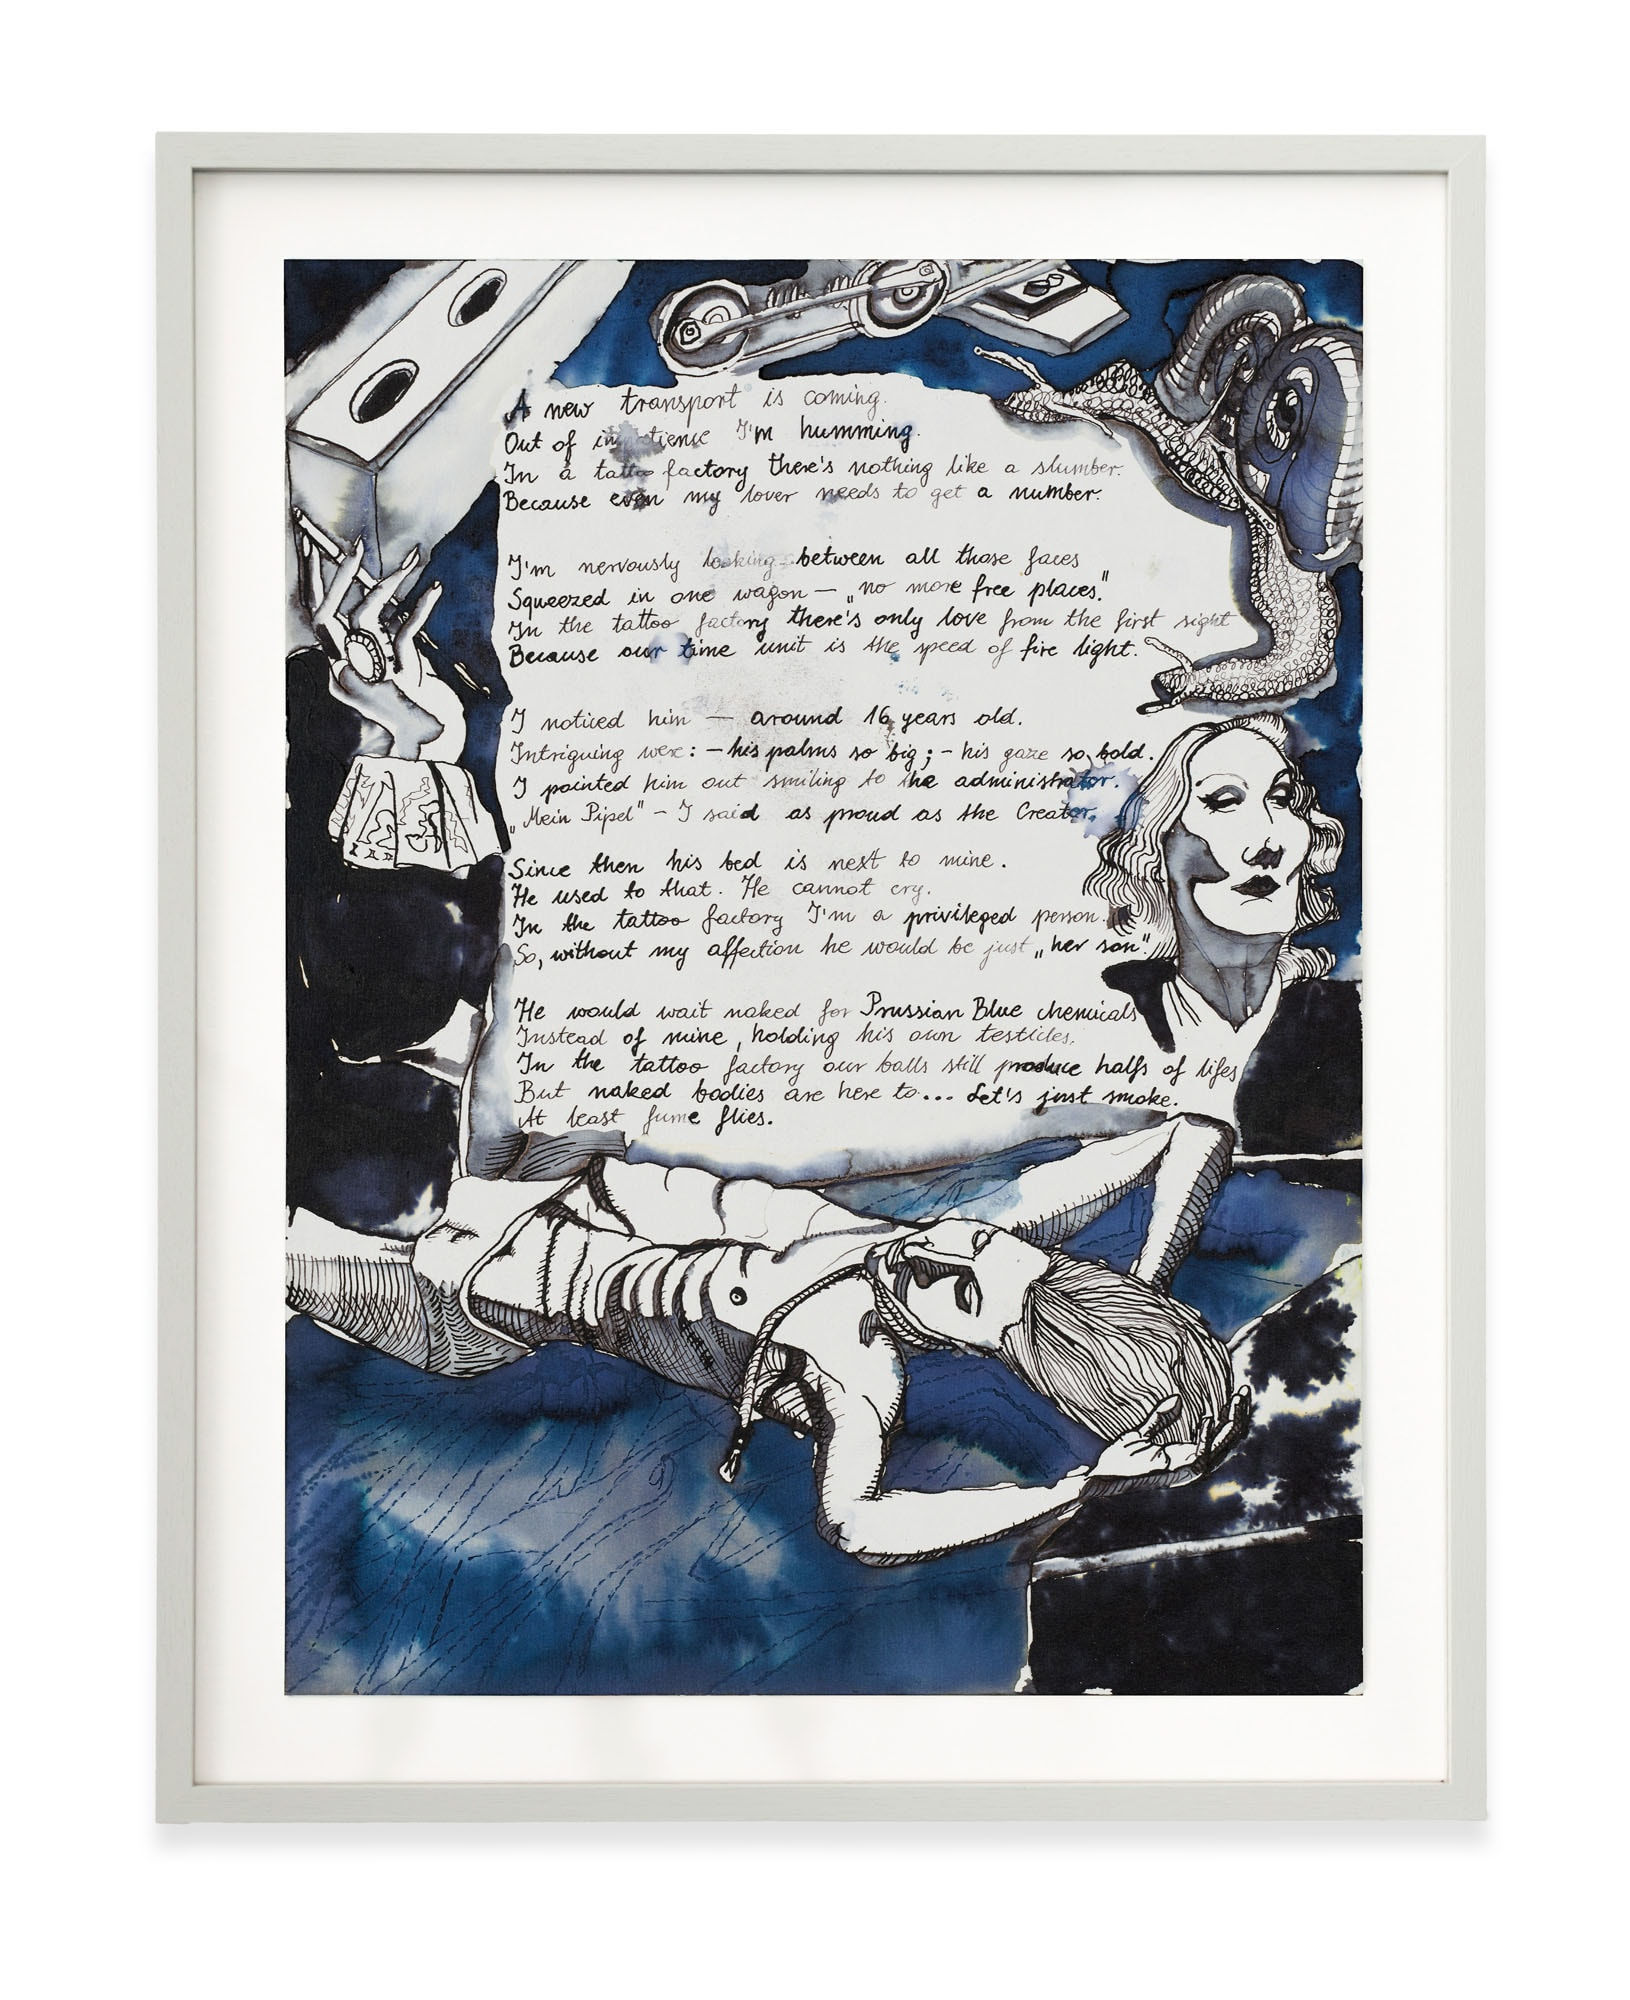 A new transport is coming.
Out of impatience I'm humming.
In a tattoo factory there's nothing like a slumber.
Because even my lover needs to get a number.
I'm nervously looking between all those faces
Squeezed in one wagon — „no more free places."
In the tattoo factory there's only love from the first sight
Because our time unit is the speed of fire light.
I noticed him — around 16 years old.
Intriguing were: – his palms so big; – his gaze so bold.
I pointed him out smiling to the administrator.
„Mein Pipel" – I said as proud as the Creator.
Since then his bed is next to mine.
He used to that. He cannot cry.
In the tattoo factory I'm a privileged person.
So, without my affection he would be just „her son".
He would wait naked for Prussian Blue chemicals
Instead of mine, holding his own testicles.
In the tattoo factory our balls still produce halfs of lifes
But naked bodies are here to... Let's just smoke.
At least fume flies.